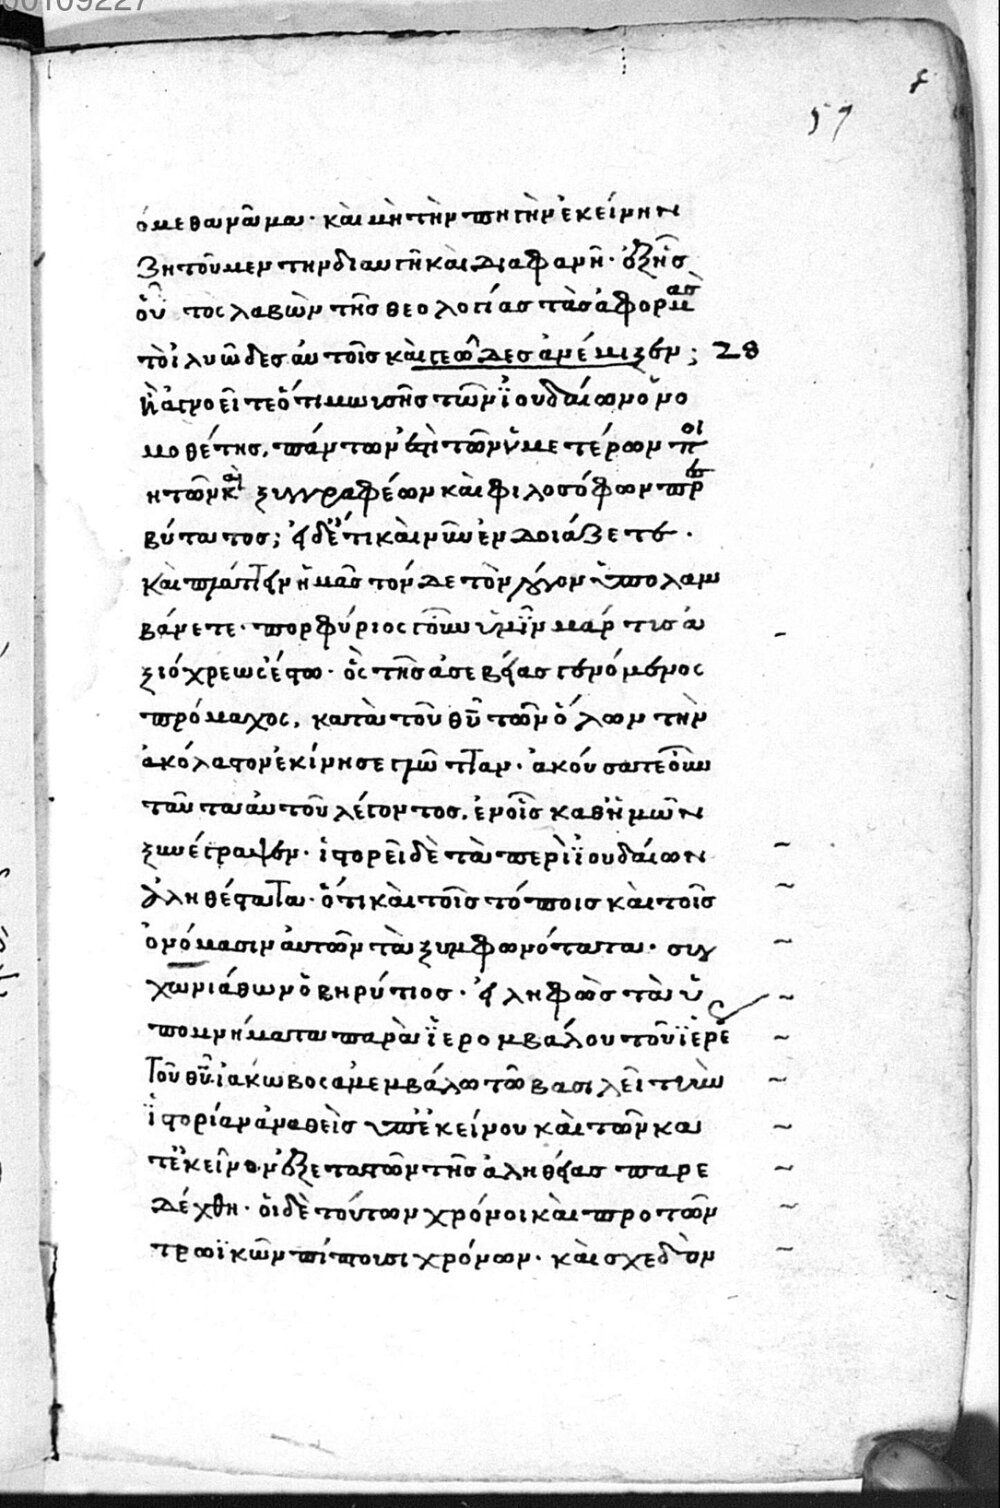 00109227
57
όμεθα νᾶμα· καὶ μὴ τὴν πηγὴν ἐκείνην
ζητοῦμεν τὴν διαυγῆ καὶ διαφανῆ· ἐξ ἧς
οὗτος λαβὼν τῆς θεολογίας τὰς ἀφορμὰς
τὸ ἰλυῶδες αὐτοῖς καὶ γεῶδες ἀνέμιξεν; 28
ἢ ἀγνοεῖτε ὅτι μωυσῆς τῶν ϊουδαίων ὁ νο
μοθέτης, πάντων ἐστὶ τῶν ὑμετέρων ποι
ητῶν καὶ ξυγγραφέων καὶ φιλοσόφων πρεσ
βύτατος; εἰ δὲ ἔτι καὶ νῦν ἐνδοιάζετε·
καὶ πλάττειν ἡμᾶς τόνδε τὸν λόγον ὑπολαμ
βάνετε· πορφύριος γοῦν ὑμῖν μάρτυς ἀ
ξιόχρεως ἔστω· ὃς τῆς ἀσεβείας γενόμενος
πρόμαχος, κατὰ τοῦ θῦ τῶν ὅλων τὴν
ἀκόλαστον ἐκίνησε γλῶτταν· ἀκούσατε οὖν
ταῦτα αὐτοῦ λέγοντος, ἐν οἷς καθ' ἡμῶν
ξυνέγραψεν· ἱστορεῖ δὲ τὰ περὶ ϊουδαίων
ἀληθέστατα· ὅτι καὶ τοῖς τόποις καὶ τοῖς
ὀνόμασιν αὐτῶν τὰ ξυμφωνότατα· σαγ
χωνιάθων ὁ βηρύτιος· εἰληφὼς τὰ ὑ
πομνήματα παρὰ ϊερομβάλου τοῦ ϊερέως
τοῦ θῦ ἰακώβος ἀνεμβάλω τῶ βασιλεῖ τὴν
ϊστορίαν ἀναθεὶς ὑπ' ἐκείνου καὶ τῶν κα
τ' ἐκεῖνον ἐξεταστῶν τῆς ἀληθείας παρε
δέχθη· οἱ δὲ τούτων χρόνοι καὶ προ τῶν
τρωϊκῶν πίπτουσι χρόνων· καὶ σχεδὸν